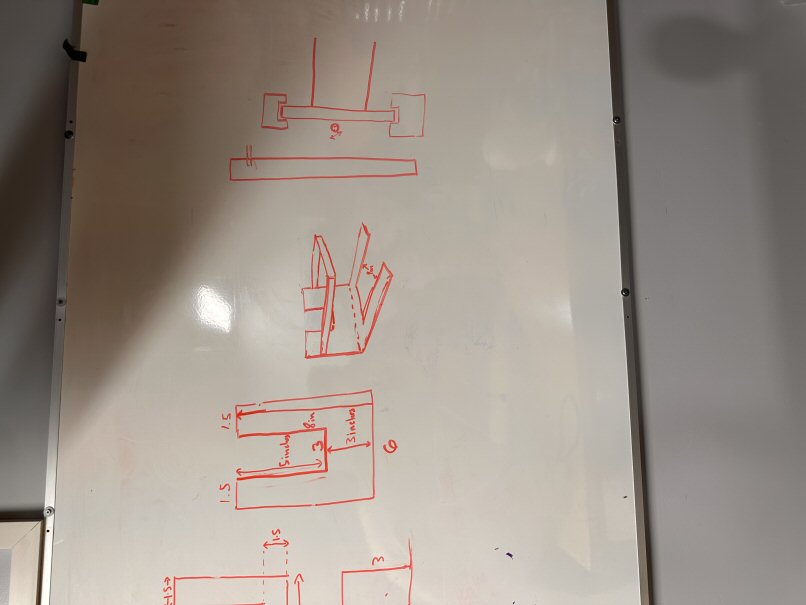 1.5
1.5
3
1.5
1.5
5 inches
8 in
3
3 inches
6